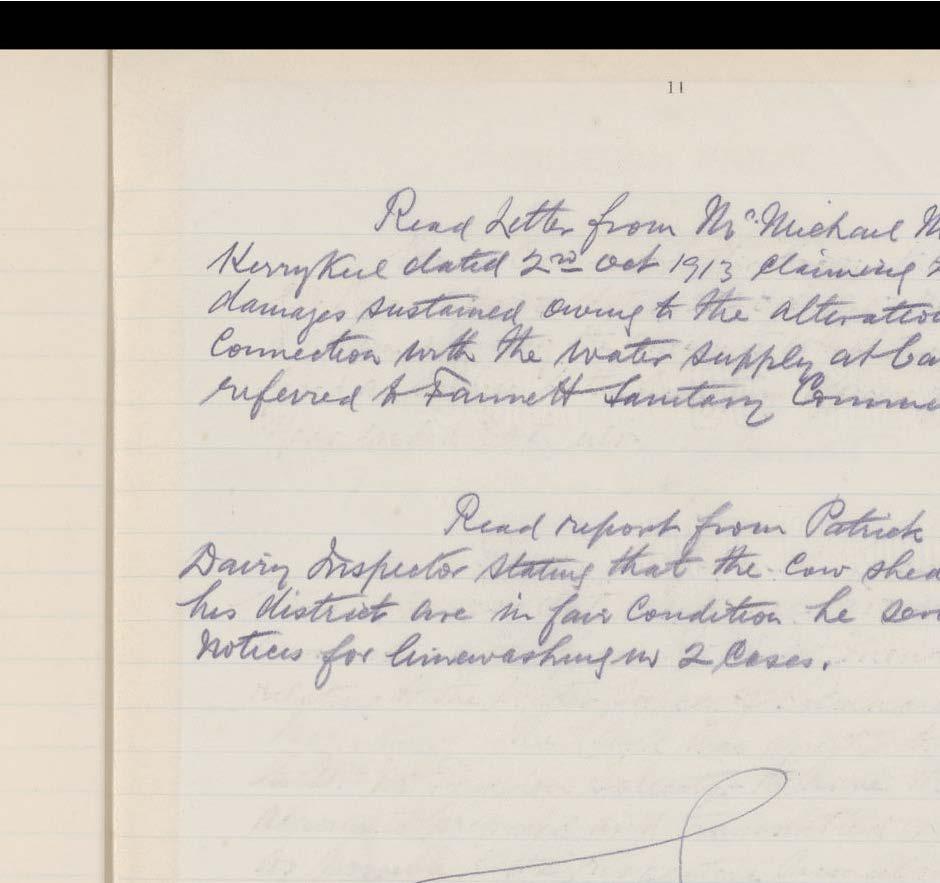 11
Read Letter from Mr. Michael
Kerrykeel dated 2nd Oct 1913 claiming
damages sustained owing to the alteration
Connection with the water supply at
referred to Fannett Sanitary
Read report from Patrick
Dairy Inspector stating that the cow shed
his district are in fair condition he
notices for limewashing in 2 cases.